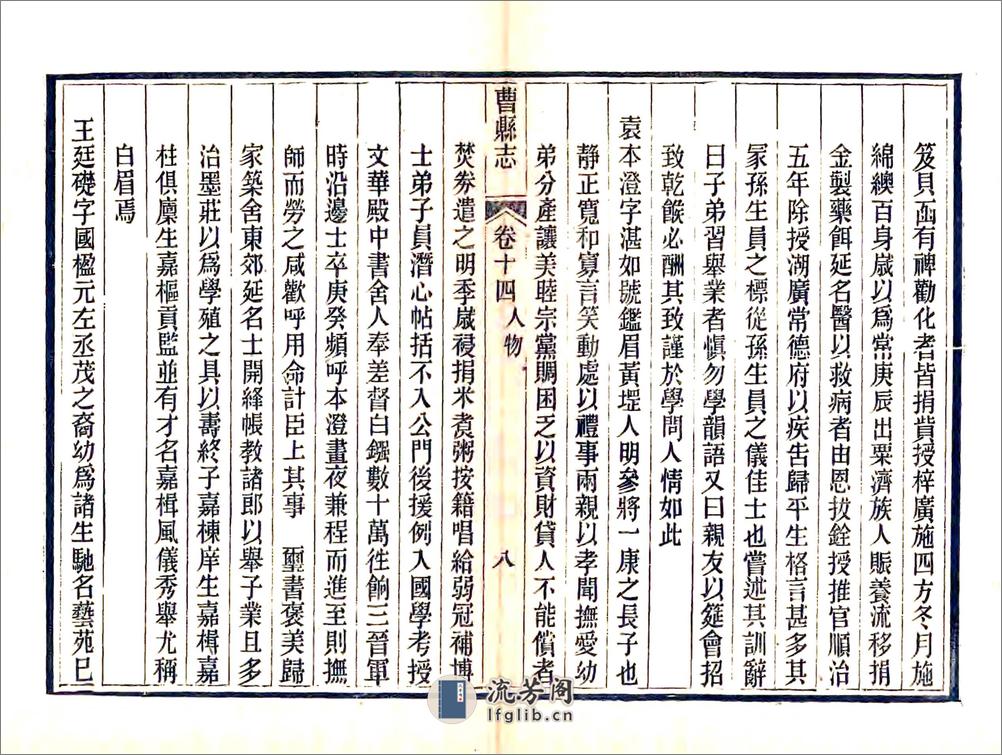 笈貝函有裨勸化者皆捐貲授梓廣施四方冬月施
綿纕百身歳以爲常庚辰出粟濟族人賑養流移捐
金製藥餌延名醫以救病者由恩拔銓授推官順治
五年除授湖廣常德府以疾告歸平生格言甚多其
冡孫生員之標從孫生員之儀佳士也嘗述其訓辭
曰子弟習舉業者愼勿學韻語又曰親友以筵會招
致乾餱必酬其致謹於學問人情如此
袁本澄字湛如號鑑眉黃堽人明參將一康之長子也
靜正寬和寡言笑動處以禮事兩親以孝聞撫愛幼
弟分產讓美睦宗黨賙困乏以資財貸人不能償者
曹縣志 卷十四 人物 八
焚劵遣之明季歳祲捐米煑粥按籍唱給弱冠補博
士弟子員潛心帖括不入公門後援例入國學考授
文華殿中書舍人奉差督白鏹數十萬徃餉三晉軍
時沿邊士卒庚癸頻呼本澄晝夜兼程而進至則撫
師而勞之咸歡呼用命計臣上其事 璽書褒美歸
家築舍東郊延名士開絳帳教諸郎以舉子業且多
治墨莊以爲學殖之具以壽終子嘉棟庠生嘉楫嘉
柱俱廩生嘉樞貢監並有才名嘉楫風儀秀舉尤稱
白眉焉
王廷礎字國楹元左丞茂之裔幼爲諸生馳名藝苑巳
流芳阁
lfglib.cn